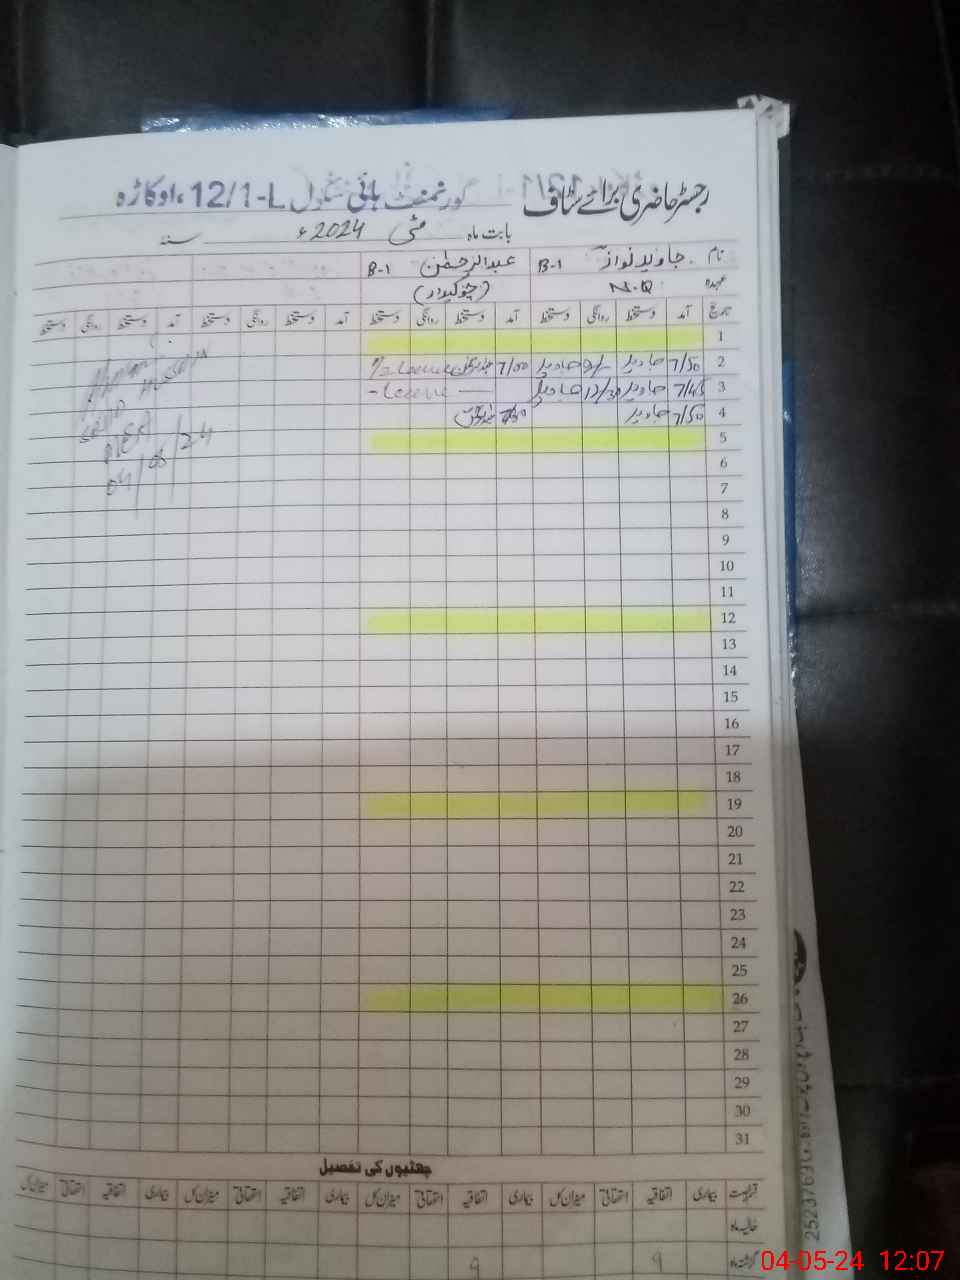 رجسٹر حاضری برائے سٹاف گورنمنٹ ہائی سکول 12/1-L، اوکاڑہ
بابت ماہ مئی 2024ء سنہ
نام جاوید نواز B-1 عبدالرحمٰن B-1
عہدہ N.Q (چوکیدار)
تاریخ آمد دستخط روانگی دستخط آمد دستخط روانگی دستخط آمد دستخط روانگی دستخط آمد دستخط روانگی دستخط
1
2 7/50 جاوید جاوید 7/00
3 7/45 جاوید 12/30 جاوید - Leave -
4 7/50 جاوید
5
6
7
8
9
10
11
12
13
14
15
16
17
18
19
20
21
22
23
24
25
26
27
28
29
30
31
AEO
04/05/24
چھٹیوں کی تفصیل
بیماری اتفاقیہ استحقاقی میزان کل بیماری اتفاقیہ استحقاقی میزان کل بیماری اتفاقیہ استحقاقی میزان کل بیماری اتفاقیہ استحقاقی میزان کل
حالیہ ماہ
گزشتہ ماہ 9 9
2523769
04-05-24 12:07